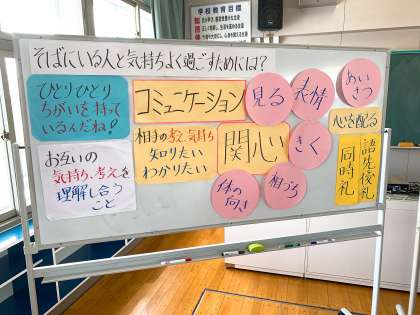 学校教育目標
そばにいる人と気持ちよく過ごすためには？
ひとりひとり
ちがいを持って
いるんだね！
コミュニケーション
見る
表情
あい
さつ
心を配る
お互いの
気持ち、考えを
理解し合う
こと
相手の考え、気持ち
知りたい
わかりたい
関心
きく
体の
向き
相づち
語先後礼
同時礼